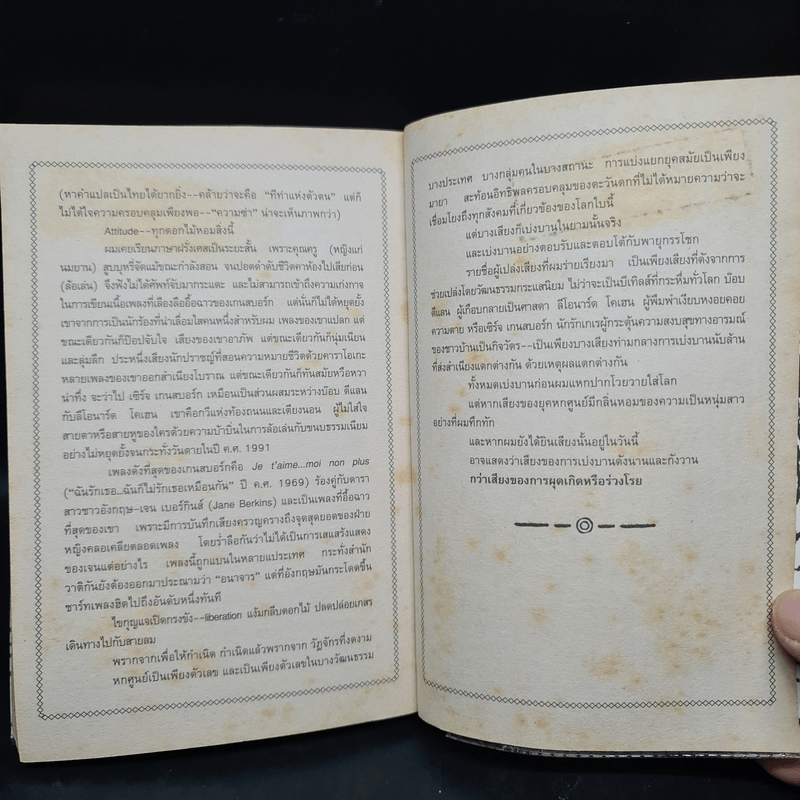 (หาคำแปลเป็นไทยได้ยากยิ่ง--คล้ายว่าจะคือ "ทีท่าแห่งตัวตน" แต่ก็
ไม่ได้ใจความครอบคลุมเพียงพอ--"ความซ่า" น่าจะเห็นภาพกว่า)
Attitude--ทุกดอกไม้หอมสิ่งนี้
ผมเคยเรียนภาษาฝรั่งเศสเป็นระยะสั้น เพราะคุณครู (หญิงแก่
นมยาน) สูบบุหรี่จัดแม้ขณะกำลังสอน จนปอดดำดับชีวิตคาห้องไปเสียก่อน
(ล้อเล่น) จึงฟังไม่ได้ศัพท์จับมากระเดียด และไม่สามารถเข้าถึงความเก่งกาจ
ในการเขียนเนื้อเพลงที่เลื่องลืออื้อฉาวของเกนสบอร์ก แต่นั่นก็ไม่ได้หยุดยั้ง
เขาจากการเป็นนักร้องที่น่าเลื่อมใสคนหนึ่งสำหรับผม เพลงของเขาแปลก แต่
ขณะเดียวกันก็ป๊อปจับใจ เสียงของเขาอาภัพ แต่ขณะเดียวกันก็นุ่มเนียน
และลุ่มลึก ประหนึ่งเสียงนักปราชญ์ที่สอนความหมายชีวิตด้วยคาราโอเกะ
หลายเพลงของเขาออกสำเนียงโบราณ แต่ขณะเดียวกันก็ทันสมัยหรือหวา
น่าทึ่ง จะว่าไป เซิร์จ เกนสบอร์ก เหมือนเป็นส่วนผสมระหว่างบ๊อบ ดีแลน
กับลีโอนาร์ด โคเฮน เขาคือกวีแห่งท้องถนนและเตียงนอน ผู้ไม่ใส่ใจ
สายตาหรือสายหูของใครด้วยความบ้าบิ่นในการล้อเล่นกับขนบธรรมเนียม
อย่างไม่หยุดยั้งจนกระทั่งวันตายในปี ค.ศ. 1991
เพลงดังที่สุดของเกนสบอร์กคือ Je t'aime...moi non plus
("ฉันรักเธอ...ฉันก็ไม่รักเธอเหมือนกัน" ปี ค.ศ. 1969) ร้องคู่กับดารา
สาวชาวอังกฤษ-เจน เบอร์กินส์ (Jane Berkins) และเป็นเพลงที่อื้อฉาว
ที่สุดของเขา เพราะมีการบันทึกเสียงครวญครางถึงจุดสุดยอดของฝ่าย
หญิงคลอเคลียตลอดเพลง โดยร่ำลือกันว่าไม่ได้เป็นการเสแสร้งแสดง
ของเจนแต่อย่างไร เพลงนี้ถูกแบนในหลายประเทศ กระทั่งสำนัก
วาติกันยังต้องออกมาประณามว่า "อนาจาร" แต่ที่อังกฤษมันกระโดดขึ้น
ชาร์ทเพลงฮิตไปถึงอันดับหนึ่งทันที
ไขกุญแจเปิดกรงขัง--liberation แง้มกลีบดอกไม้ ปลดปล่อยเกสร
เดินทางไปกับสายลม
พรากจากเพื่อให้กำเนิด กำเนิดแล้วพรากจาก วัฏจักรที่งดงาม
หกศูนย์เป็นเพียงตัวเลข และเป็นเพียงตัวเลขในบางวัฒนธรรม
บางประเทศ บางกลุ่มคนในบางสถานะ การแบ่งแยกยุคสมัยเป็นเพียง
มายา สะท้อนอิทธิพลครอบคลุมของตะวันตกที่ไม่ได้หมายความว่าจะ
เชื่อมโยงถึงทุกสังคมที่เกี่ยวข้องของโลกใบนี้
แต่บางเสียงก็เบ่งบานในยามนั้นจริง
และเบ่งบานอย่างตอบรับและตอบโต้กับพายุกรรโชก
รายชื่อผู้เปล่งเสียงที่ผมร่ายเรียงมา เป็นเพียงเสียงที่ดังจากการ
ช่วยเปล่งโดยวัฒนธรรมกระแสนิยม ไม่ว่าจะเป็นบีเทิลส์ที่กระหึ่มทั่วโลก บ๊อบ
ดีแลน ผู้เกือบกลายเป็นศาสดา ลีโอนาร์ด โคเฮน ผู้พึมพำเงียบหงอยคอย
ความตาย หรือเซิร์จ เกนสบอร์ก นักรักเกเรผู้กระตุ้นความสงบสุขทางอารมณ์
ของชาวบ้านเป็นกิจวัตร--เป็นเพียงบางเสียงท่ามกลางการเบ่งบานนับล้าน
ที่ส่งสำเนียงแตกต่างกัน ด้วยเหตุผลแตกต่างกัน
ทั้งหมดเบ่งบานก่อนผมแหกปากโวยวายใส่โลก
แต่หากเสียงของยุคหกศูนย์มีกลิ่นหอมของความเป็นหนุ่มสาว
อย่างที่ผมทึกทัก
และหากผมยังได้ยินเสียงนั้นอยู่ในวันนี้
อาจแสดงว่าเสียงของการเบ่งบานดังนานและกังวาน
กว่าเสียงของการผุดเกิดหรือร่วงโรย